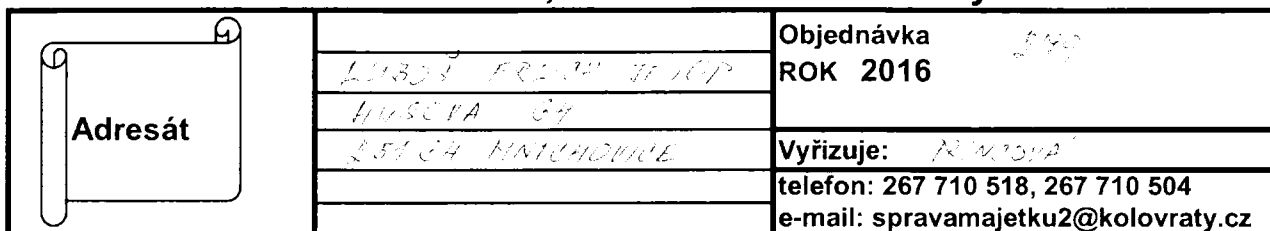 Adresát
LUBOŠ
HUSOVA 64
251 64 MNICHOVICE
Objednávka
ROK 2016
Vyřizuje:
telefon: 267 710 518, 267 710 504
e-mail: spravamajetku2@kolovraty.cz